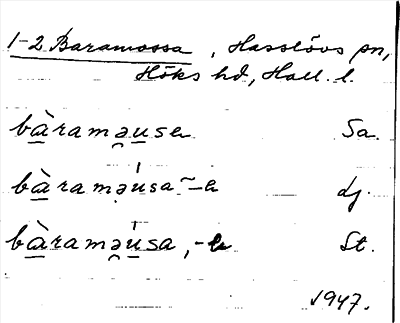 1-2 Baramossa, Hasslövs sn,
Höks hd, Hall. l.
bàramə̯use Sa.
bàramə̯úsa ~-e dj.
bàramə̯úsa, -e St.
1947.